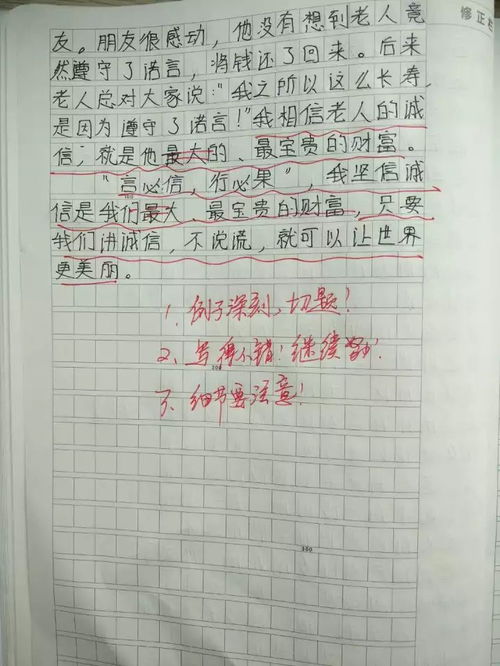 修正
友。朋友很感动，他没有想到老人竟
然遵守了诺言，将钱还了回来。后来
老人总对大家说："我之所以这么长寿，
是因为遵守了诺言！"我相信老人的诚
信，就是他最大的、最宝贵的财富。
"言必信，行必果"，我坚信诚
信是我们最大、最宝贵的财富，只要
我们讲诚信，不说谎，就可以让世界
更美丽。
1、例子深刻，切题！
2、写得不错！继续
3、细节要注意！